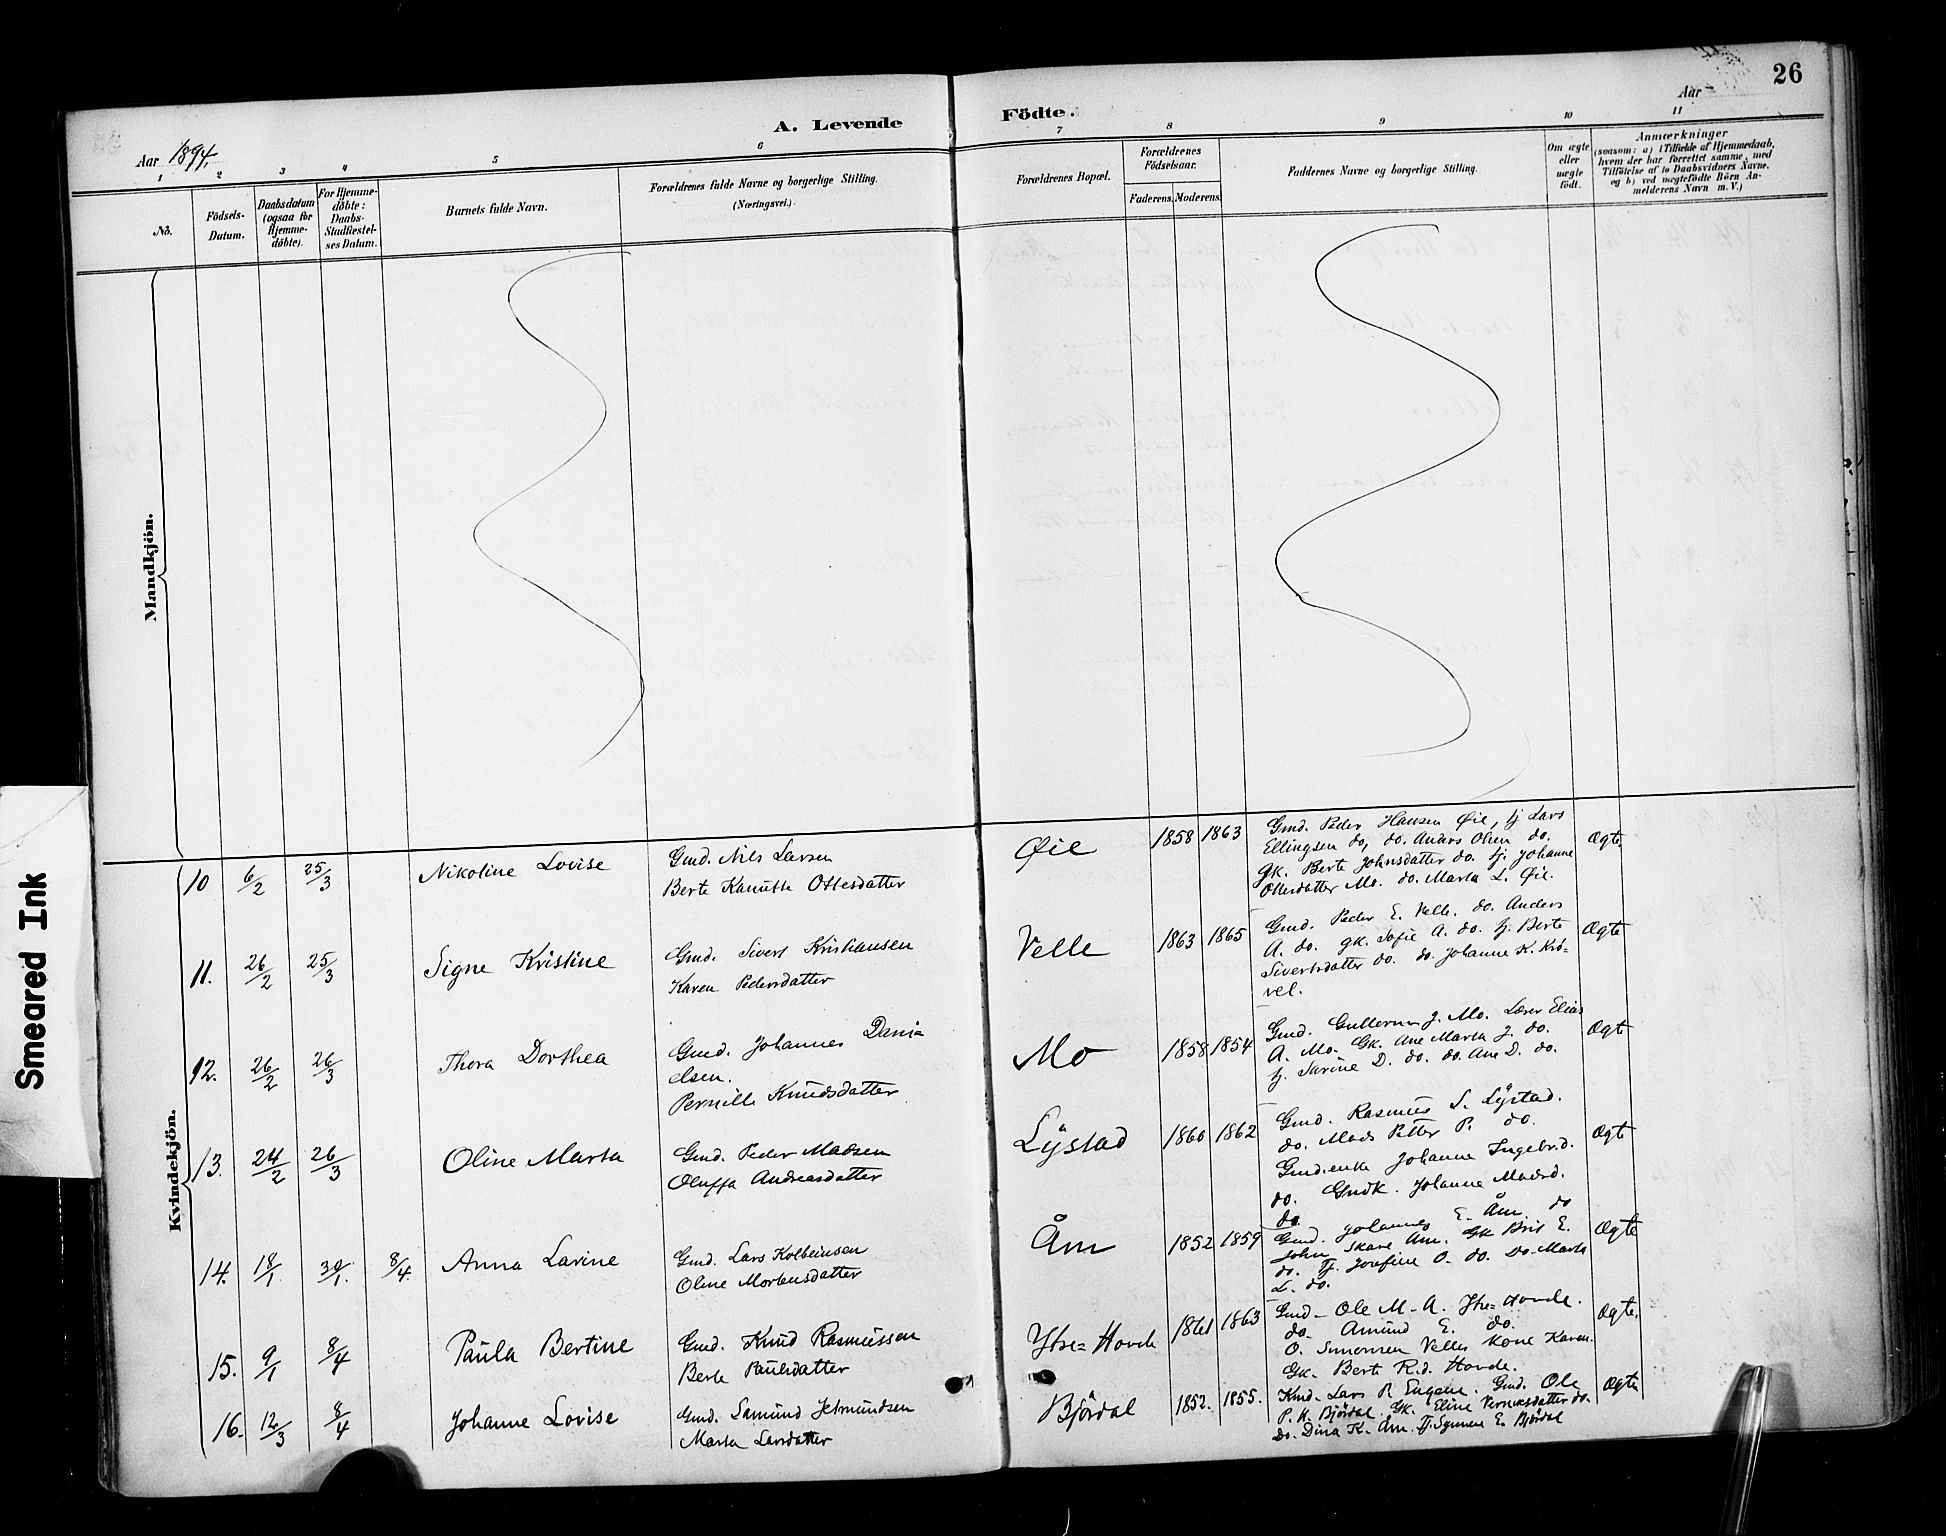 26
A. Levende Födte.
Aar 1894.
Aar
1 2 3 4 5 6 7 8 9 10 11
No.
Födsels-Datum.
Daabsdatum (ogsaa for Hjemme-döbte).
For Hjemme-döbte: Daabs-Stadfæstel-ses Datum.
Barnets fulde Navn.
Forældrenes fulde Navne og borgerlige Stilling.
(Næringsvei.)
Forældrenes Bopæl.
Forældrenes Födselsaar.
Faderens. Moderens.
Faddernes Navne og borgerlige Stilling.
Om ægte eller uægte födt.
Anmærkninger
(saasom: a) i Tilfælde af Hjemmedaab,
hvem der har forrettet samme, med
Tilföielse af to Daabsvidners Navne.
og b) ved uægtefödte Börn An-
melderens Navn m. V.)
Mandkjön.
Kvindekjön.
Smeared Ink
10 6/2 25/3 Nikoline Lovise
Gmd. Nils Larsen
Berte Kanutte Ottesdatter
Øie 1858 1863
Gmd. Peder Hansen Øie, tj Lars
Ellingsen do, do. Anders Olsen do.
gk. Berte Johnsdatter do. tj. Johanne
Ottesdatter Mo. do. Marta L. Øie.
Ægte.
11. 26/2 25/3 Signe Kristine
Gmd. Sivert Kristiansen
Karen Pedersdatter
Velle 1863 1865
Gmd. Peder E. Velle. do. Anders
A. do. gk. Sofie A. do. tj. Berte
Sivertsdatter do. do. Johanne K. Krö-
vel.
Ægte
12. 26/2 26/3 Thora Dorthea
Gmd. Johannes Dani
elsen.
Pernille Knudsdatter
Mo 1858 1854
Gmd. Guttorm J. Mo. Lærer Elias
A. Mo. Gk. Ane Marta J. do.
tj. Sarine D. do. do. Ane D. do.
Ægt
13. 24/2 26/3 Oline Marta
Gmd. Peder Madsen
Oluffa Andreasdatter
Lystad 1860 1862
Gmd. Rasmus S. Lystad.
do. Mads Petter P. do.
Gmd.enke Johanne Ingebr.d.
do. Gmdk. Johanne Madsd.
do.
Ægte
14. 18/1. 30/1. 8/4. Anna Lavine
Gmd. Lars Kolbeinsen
Oline Mortensdatter
Åm 1852 1859
Gmd. Johannes E. Åm. do
John Skare Åm. Gk Brit E.
do. Tj. Josefine O. do. Do. Marta
L. do.
Ægte
15. 9/1 8/4 Paula Bertine
Gmd. Knud Rasmussen
Berte Paulsdatter
Ytre=Hovde 1861 1863
Gmd. Ole M. A. Ytre=Hovde.
do. Amund E. do.
O. Simonsen Velles Kone Karen.
Gk. Berte R.d. Hovde.
Ægte.
16. 12/3 8/4 Johanne Lovise
Gmd. Samund Jetmundsen
Marta Larsdatter
Björdal 1852. 1855.
Kmd. Lars P. Gmd. Ole
P. K. Björdal. Gk. Eline do.
Do. Dina K. Åm. Tj. Synnev E. Björdal
Ægte